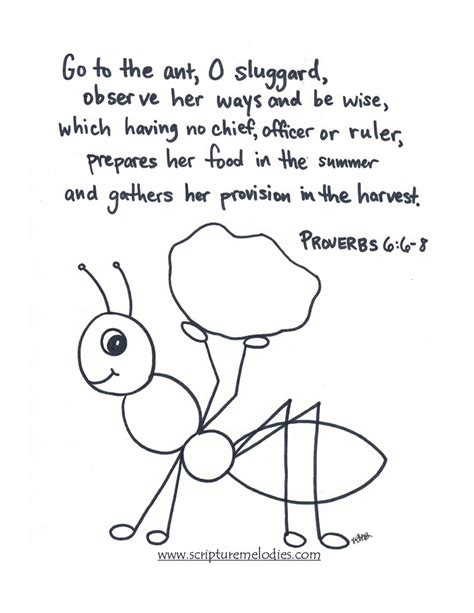 Go to the ant, O sluggard,
observe her ways and be wise,
which having no chief, officer or ruler,
prepares her food in the summer
and gathers her provision in the harvest.
PROVERBS 6:6-8
www.scripturemelodies.com